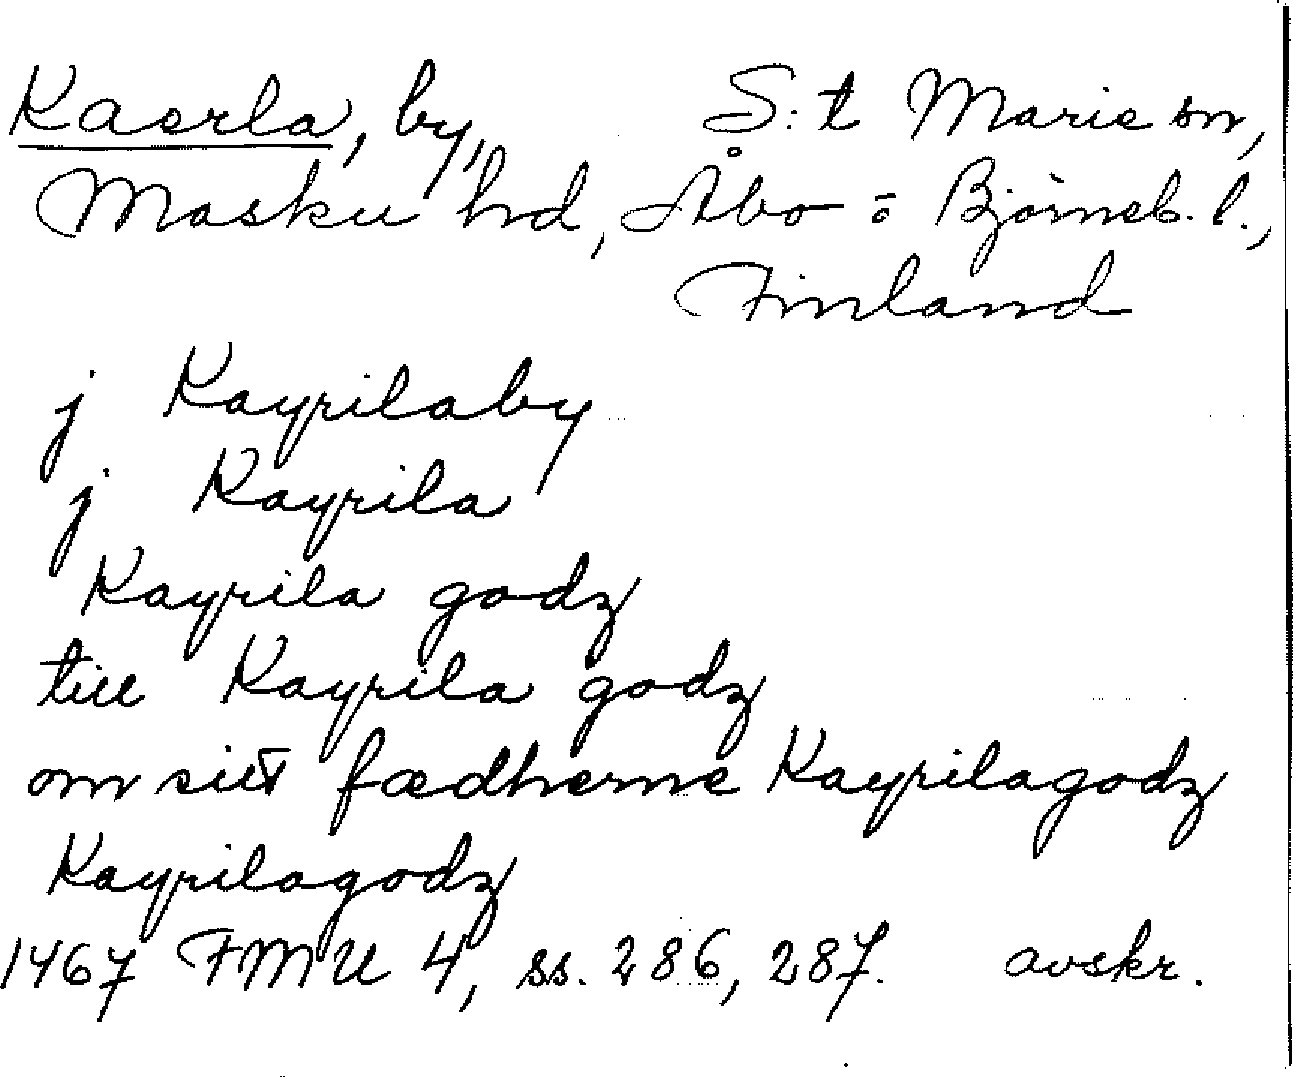 Kaerla, by, S:t Marie sn,
Masku hd, Åbo = Björneb. l.,
Finland
j Kayrilaby
j Kayrila
Kayrila godz
till Kayrila godz
om sitt fædherne Kayrilagodz
Kayrilagodz
1467 FMU 4, ss. 286, 287. avskr.